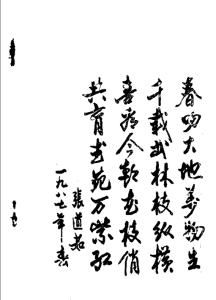 春吻大地萬物生
千载武林枝纵横
喜看今朝花枝俏
共育艺苑万紫红
張道
一九八七年春